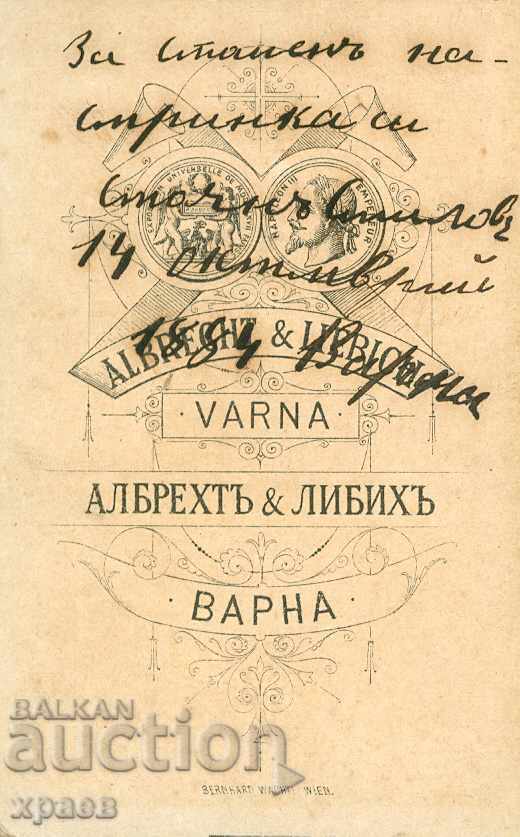 За споменъ на-
Стоянъ
14 октомврий
EXPOSITION UNIVERSELLE DE
NAPOLEON III EMPEREUR
1894 Варна
ALBRECHT & LIEBICH
· VARNA ·
АЛБРЕХТЪ & ЛИБИХЪ
· ВАРНА ·
BALKAN
auction
храев
BERNHARD WACHTL WIEN.